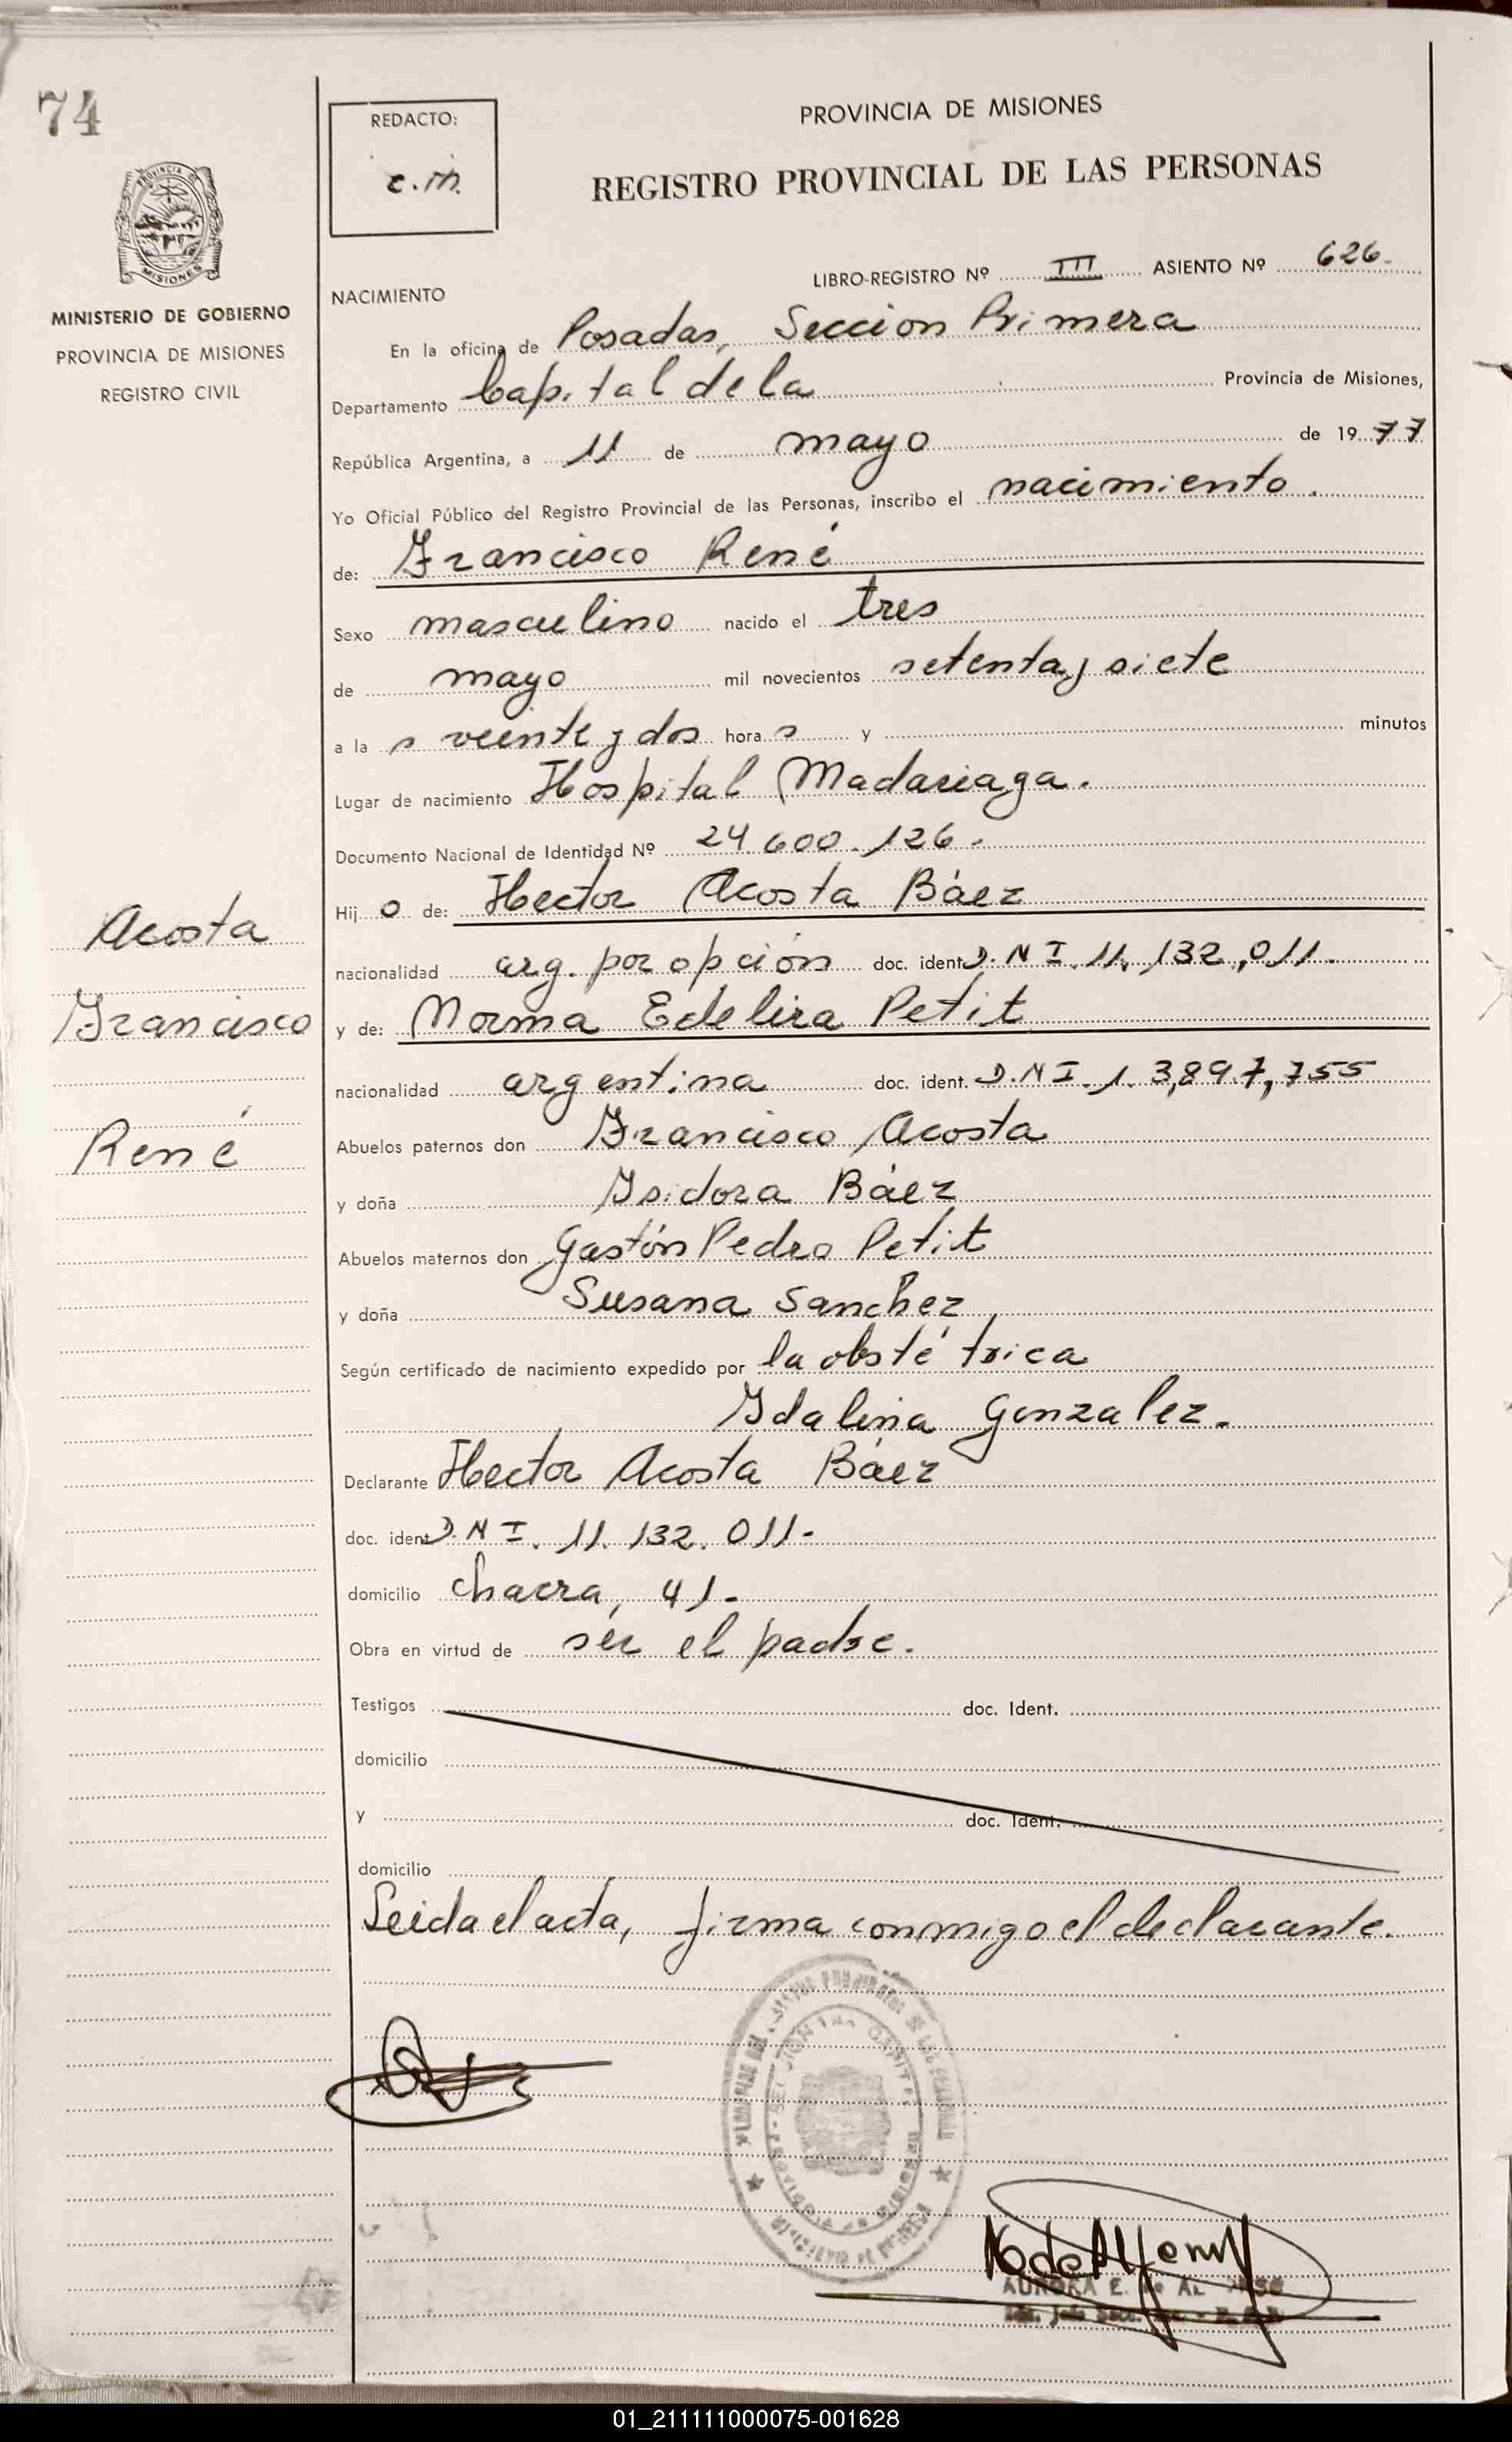 74
REDACTO:
c.m.
PROVINCIA DE MISIONES
REGISTRO PROVINCIAL DE LAS PERSONAS
PROVINCIA DE
MISIONES
MINISTERIO DE GOBIERNO
PROVINCIA DE MISIONES
REGISTRO CIVIL
LIBRO-REGISTRO Nº III ASIENTO Nº 626.
NACIMIENTO
En la oficina de Posadas, Seccion Primera
Departamento Capital de la Provincia de Misiones,
República Argentina, a 11 de mayo de 1977
Yo Oficial Público del Registro Provincial de las Personas, inscribo el nacimiento.
de: Francisco René
Sexo masculino nacido el tres
de mayo mil novecientos setenta y siete
a las veinte y dos horas y minutos
Lugar de nacimiento Hospital Madariaga.
Documento Nacional de Identidad Nº 24.600.126.
Hijo de: Hector Acosta Báez
Acosta
nacionalidad arg. por opción doc. ident D.N I. 11.132,011.
Francisco
y de: Norma Edelira Petit
nacionalidad argentina doc. ident. D.N I. 13,897,755
Abuelos paternos don Francisco Acosta
René
y doña Isidora Báez
Abuelos maternos don Gastón Pedro Petit
y doña Susana Sanchez
Según certificado de nacimiento expedido por la obstétrica
Idalina Gonzalez.
Declarante Hector Acosta Báez
doc. ident D.N I. 11.132.011.
domicilio chacra, 41.
Obra en virtud de ser el padre.
Testigos doc. Ident.
domicilio
y doc. Ident.
domicilio
Leida el acta, firma conmigo el declarante.
AURORA E. de AL
01_211111000075-001628